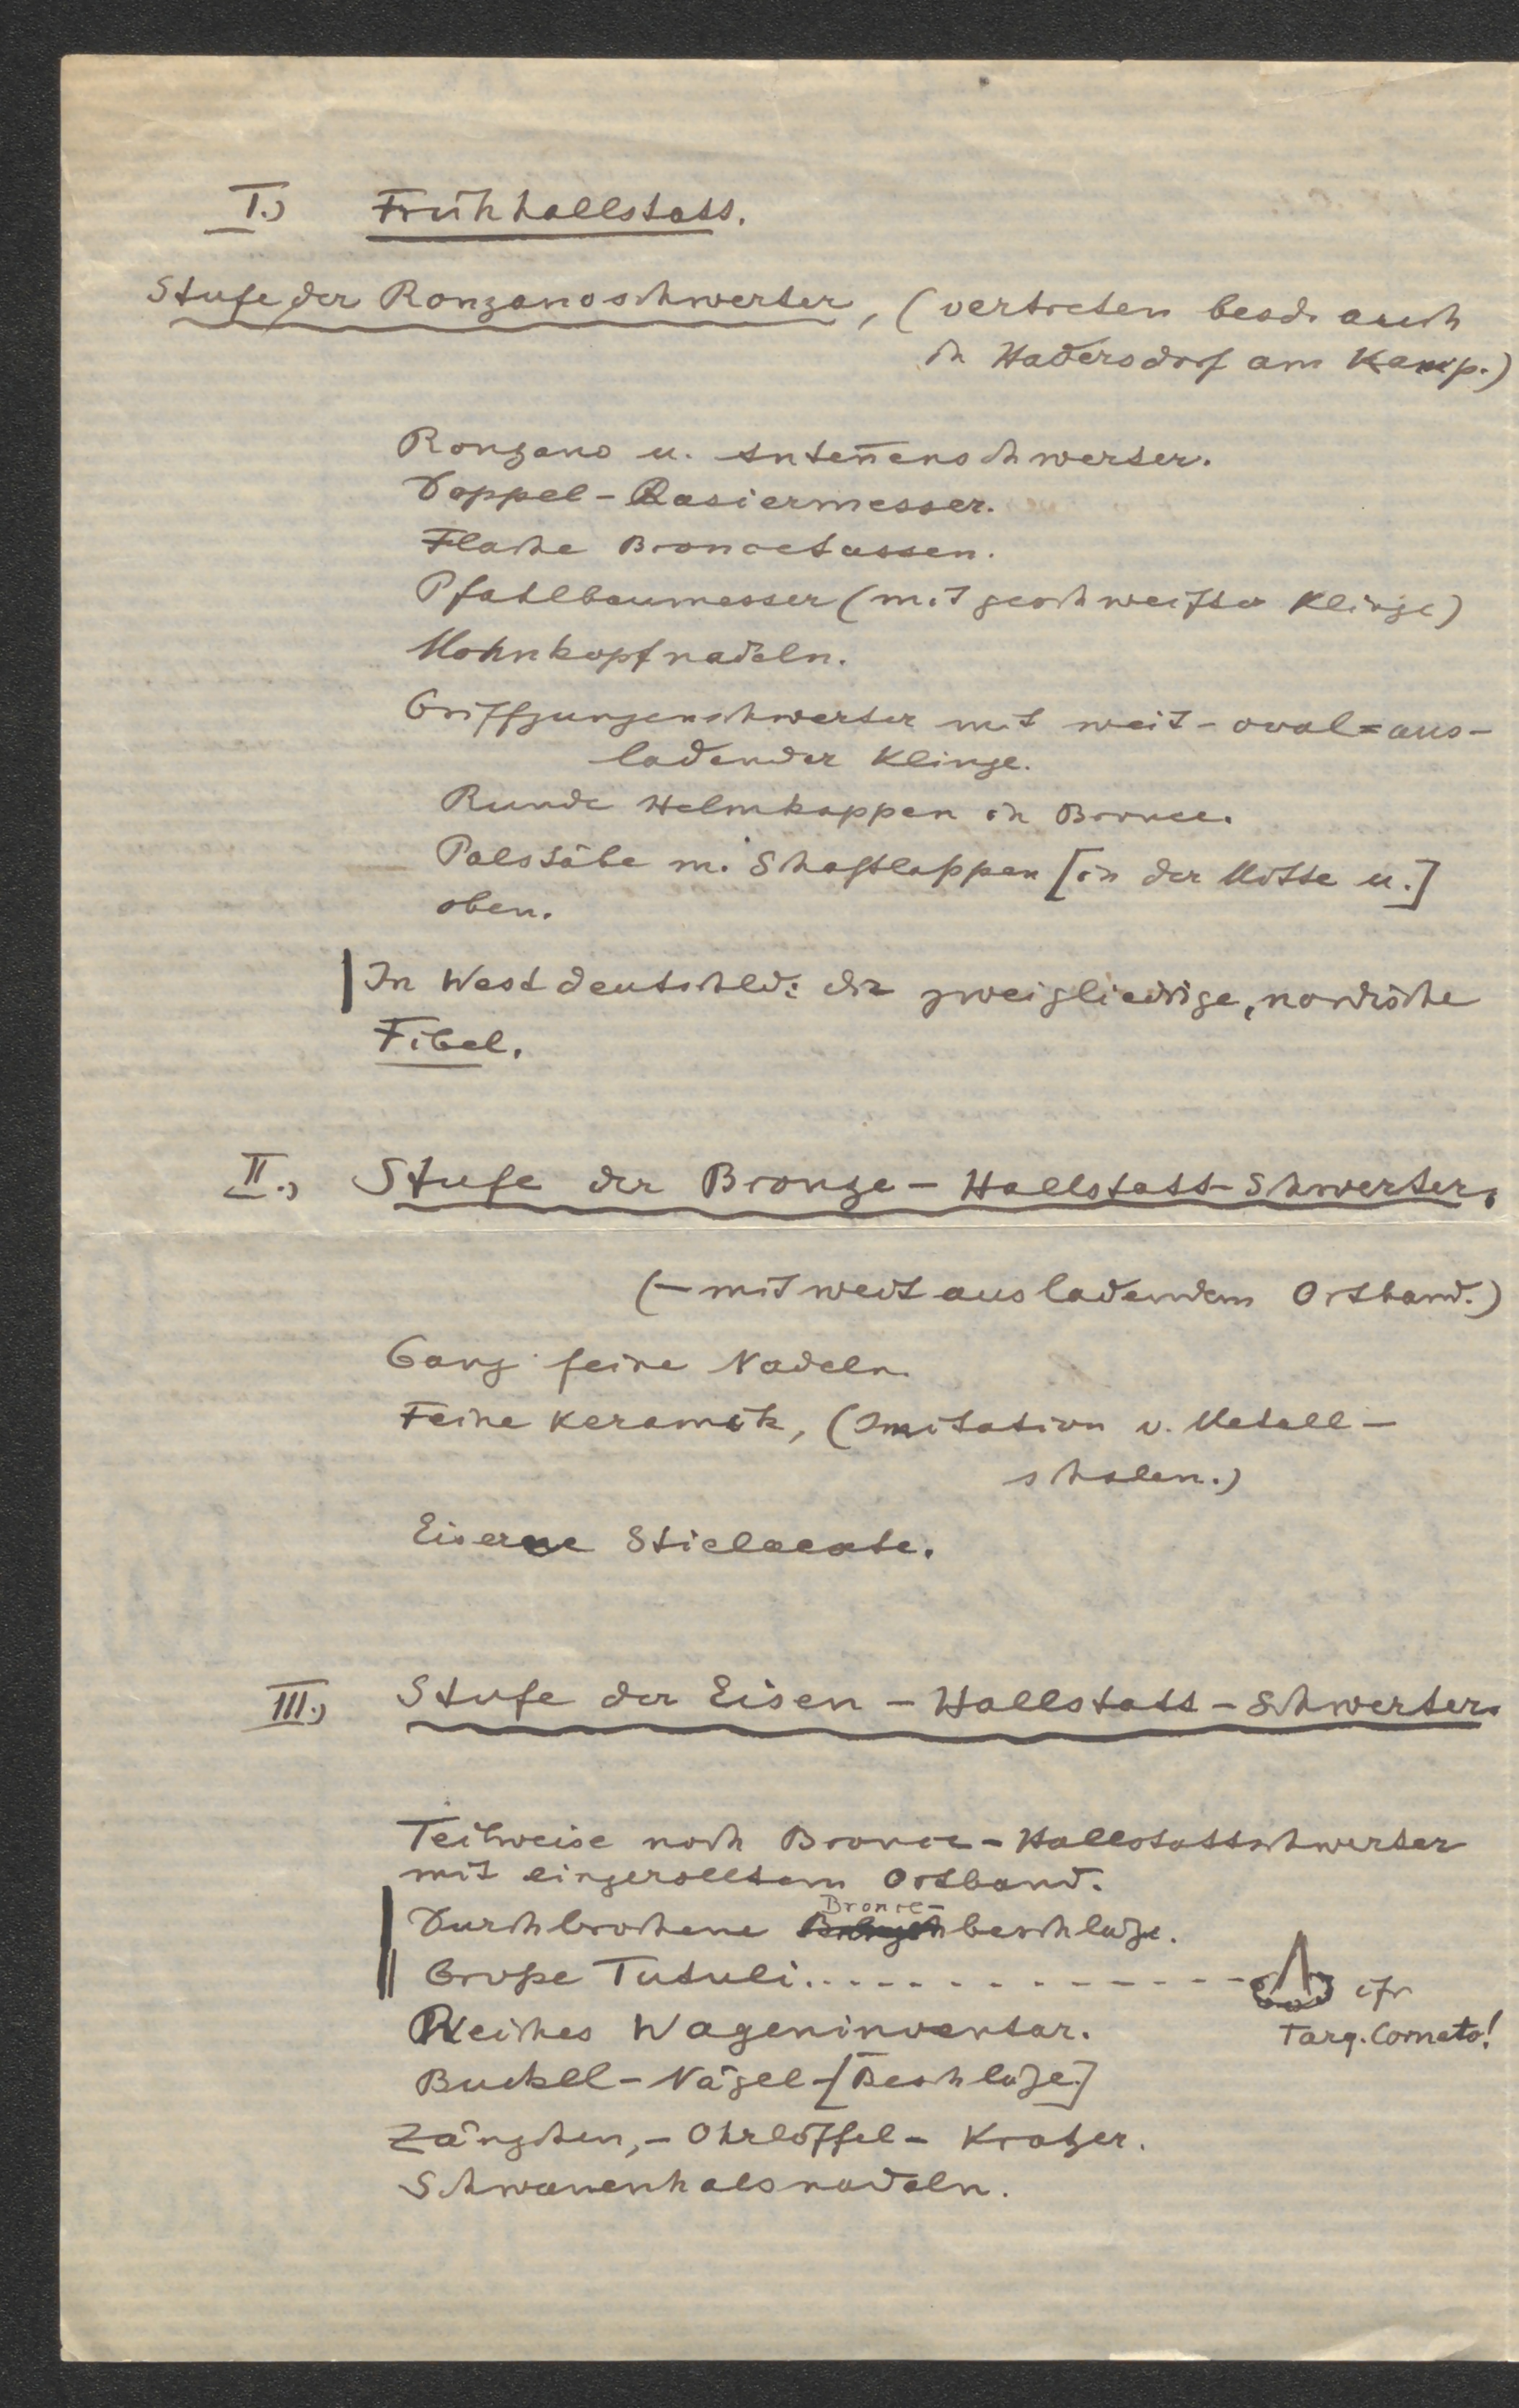 I.) Frühhallstatt.
Stufe der Ronzanoschwerter, (vertreten besd. auch
in Hadersdorf am Kamp.)
Ronzano u. Anten̄enschwerter.
Doppel-Rasiermesser.
Flache Broncetassen.
Pfahlbaumesser (mit geschweifter Klinge)
Mohnkopfnadeln.
Griffzungenschwerter mit weit-oval=aus-
ladender Klinge.
Runde Helmkappen in Bronce.
Palstäbe m. Schaftlappen [in der Mitte u.]
oben.
In Westdeutschld: die zweigliedrige, nordische
Fibel.
II.) Stufe der Bronze-Hallstatt-Schwerter.
(-mit weit ausladendem Ortband.)
Ganz feine Nadeln.
Feine Keramik, (Imitation v. Metall-
schalen.)
Eiserne Stielaexte.
III.) Stufe der Eisen-Hallstatt-Schwerter.
Teilweise noch Bronce-Hallstattschwerter
mit eingerolltem Ortband.
Durchbrochene Bronce-beschläge.
Große Tutuli.............. cfr
Reiches Wageninventar. Targ. Corneto!
Buckel-Nägel-[Beschläge]
Zängchen,-Ohrlöffel-Kratzer.
Schwanenhalsnadeln.